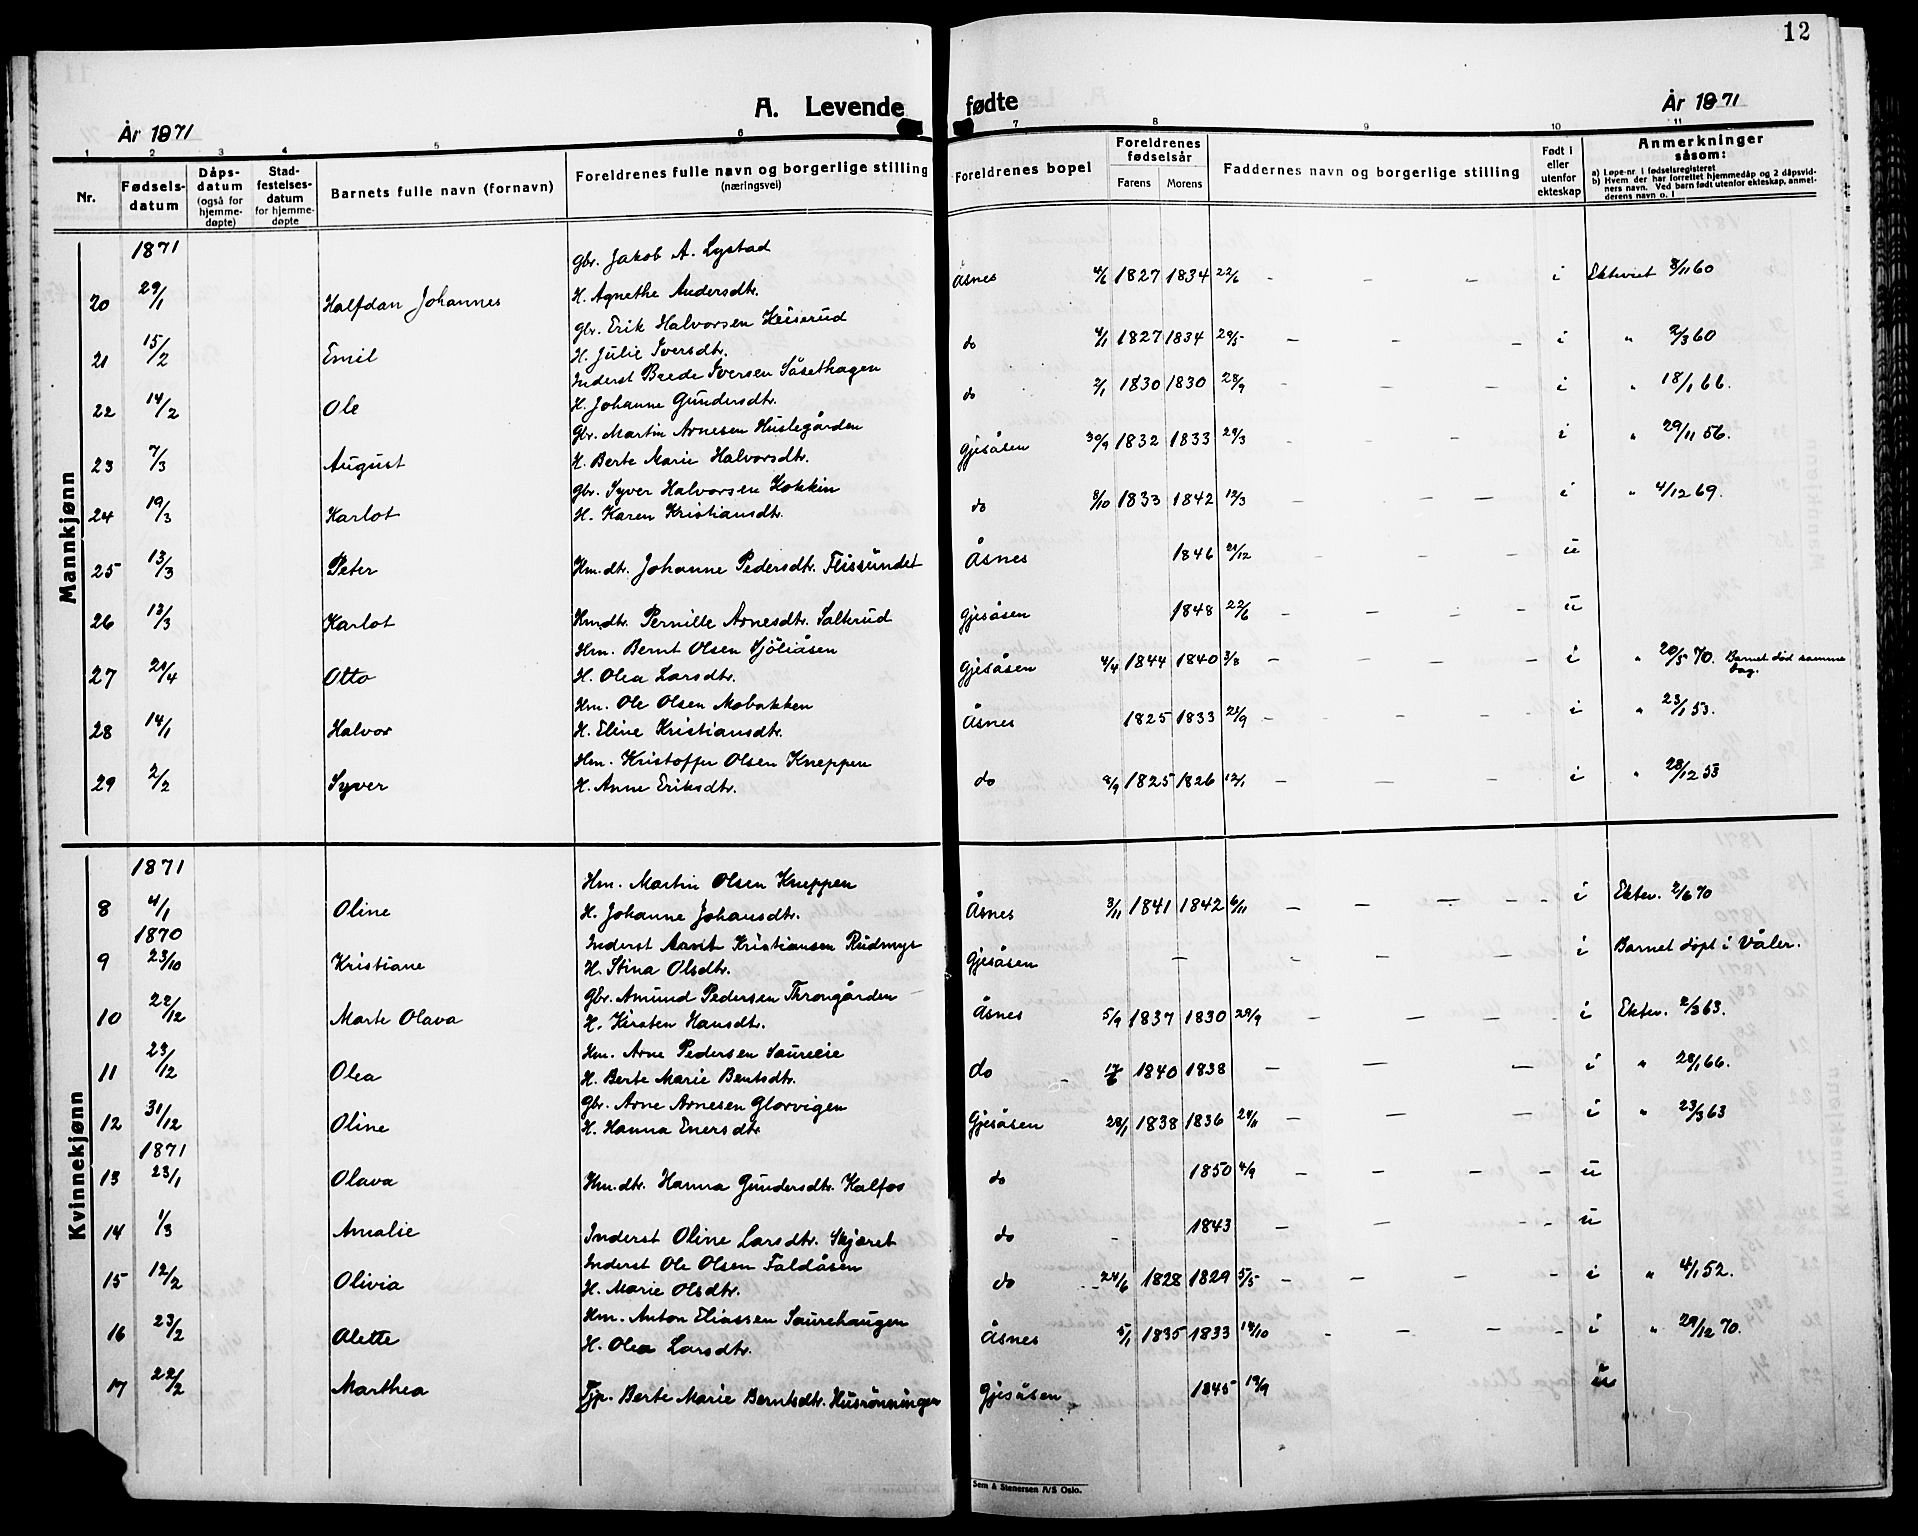 12
A. Levende fødte
År 1871
År 1871
1 2 3 4 5 6 7 8 9 10 11
Nr. Fødsels-datum Dåps-datum (også for hjemme-døpte) Stad-festelses-datum for hjemme-døpte Barnets fulle navn (fornavn) Foreldrenes fulle navn og borgerlige stilling (næringsvei) Foreldrenes bopel Foreldrenes fødselsår Farens Morens Faddernes navn og borgerlige stilling Født i eller utenfor ekteskap Anmerkninger såsom:
a) Løpe-nr i fødselsregisteret
b) Hvem der har forrettet hjemmedåp og 2 dåpsvidners navn. Ved barn født utenfor ekteskap, anmelderens navn o. l
Mannkjønn
1871
Gbr. Jakob A. Lystad
20 29/1 Halfdan Johannes H. Agnethe Andersdtr. Åsnes 4/6 1827 1834 22/6 - - - i Ekteviet 8/11 60
Gbr. Erik Halvorsen Keiserud
21 15/2 Emil H. Julie Iversdtr. do 4/1 1827 1834 29/5 - - - i " 2/3 60
Inderst Brede Iversen Såsethagen
22 14/2 Ole H. Johanne Gundersdtr. do 2/1 1830 1830 28/9 - - - i " 18/1 66.
Gbr. Martin Arnesen Huslegården
23 7/3 August H. Berte Marie Halvorsdtr. Gjesåsen 30/9 1832 1833 29/3 - - - i " 29/11 56.
Gbr. Syver Halvorsen Kokkin
24 19/3 Karlot H. Karen Kristiansdtr. do 8/10 1833 1842 12/3 - - - i " 4/12 69.
25 13/3 Peter Hm.dtr. Johanne Pedersdtr. Flissundet Åsnes 1846 21/12 - - - u
26 13/3 Karlot Hmdtr. Pernille Arnesdtr. Salterud Gjesåsen 1848 22/6 - - - u
Hm. Bernt Olsen Sjøliåsen
27 21/4 Otto H. Olea Larsdtr. Gjesåsen 4/4 1844 1840 3/8 - - - i " 20/5 70. Barnet død samme dag.
Hm. Ole Olsen Mobakken
28 14/1 Halvor H. Eline Kristiansdtr. Åsnes 1825 1833 23/9 - - - i " 23/1 53.
Hm. Kristoffer Olsen Kneppen
29 2/2 Syver H. Anne Eriksdtr. do 8/9 1825 1826 12/1 - - - i " 28/12 53
Kvinnekjønn
1871
Hm. Martin Olsen Kneppen
8 4/1 Oline H. Johanne Johansdtr. Åsnes 3/11 1841 1842 6/11 - - - i Ektev. 2/6 70
1870
Inderst Kristiansen Rudmyr
9 23/10 Kristiane H. Stina Olsdtr. Gjesåsen - - - i Barnet døpt i Våler.
Gbr. Amund Pedersen Throngården
10 22/12 Marte Olava H. Kirsten Hansdtr. Åsnes 5/9 1837 1830 29/9 - - - i Ektev. 2/3 63.
Hm. Arne Pedersen Saureeie
11 23/12 Olea H. Berte Marie Bentsdtr. do 17/6 1840 1838 - - - i " 28/1 66.
Gbr. Arne Arnesen Glorvigen
12 31/12 Oline H. Hanna Enersdtr Gjesåsen 28/1 1838 1836 24/11 - - - i " 23/3 63
1871
13 23/1 Olava Hm.dtr. Hanna Gundersdtr. Kalfos do 1850 4/9 - - - u
14 1/3 Amalie Inderst Oline Larsdtr. Skjæret do 1843 - - - u
Inderst Ole Olsen Faldåsen
15 12/2 Olivia H. Marie Olsdtr. do 24/6 1828 1829 5/5 - - - i " 4/1 52.
Hm. Anton Eliassen Saurehaugen
16 23/2 Alette H. Olea Larsdtr. Åsnes 5/1 1835 1833 14/10 - - - i " 29/12 70.
17 22/2 Marthea Tjp. Berte Marie Berntsdtr. Husrønningen Gjesåsen 1845 19/9 u
Sem & Stenersen A/S Oslo.